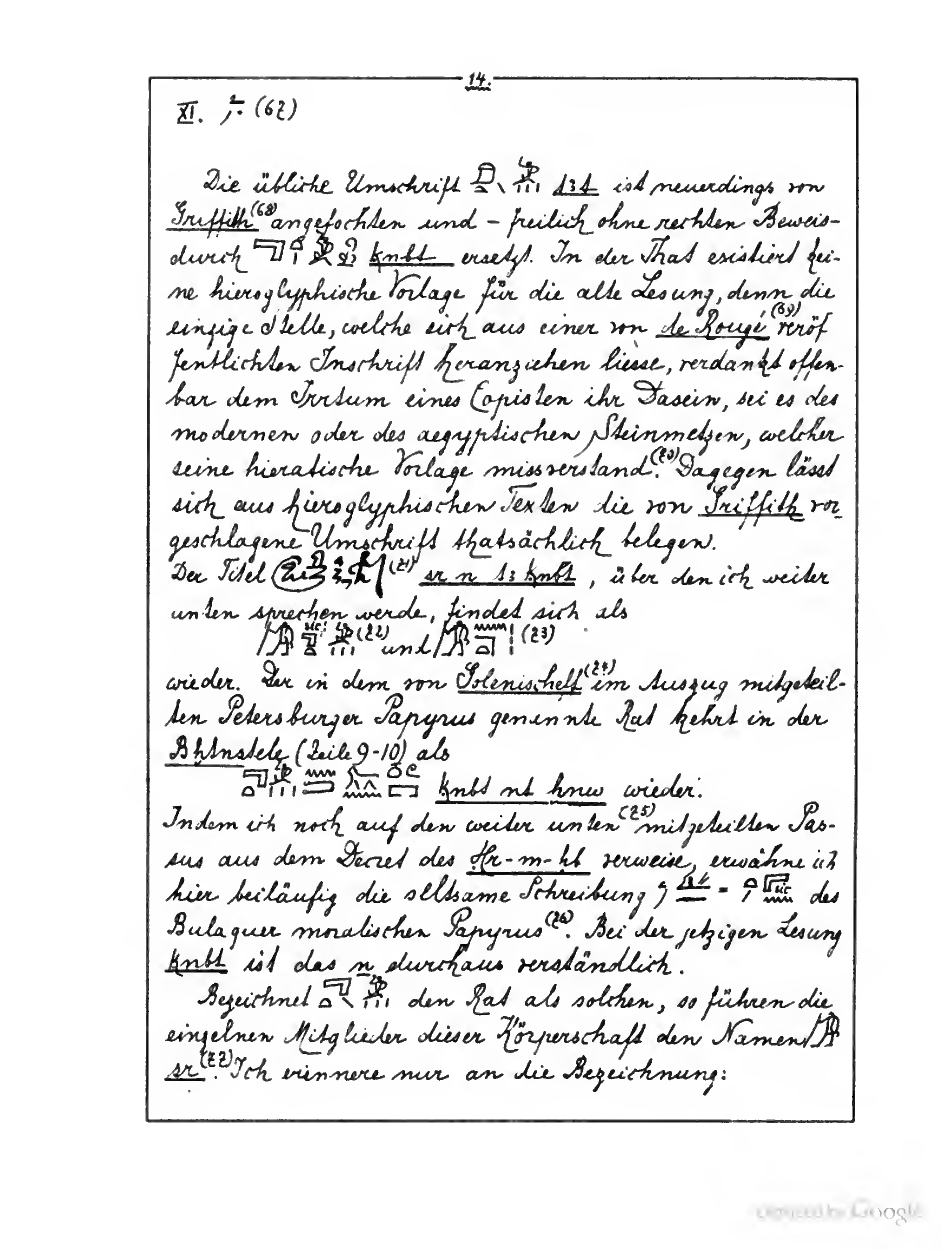 14.
XI. (67)
Die übliche Umschrift ist neuerdings von
Griffith (68) angefochten und – freilich ohne rechten Beweis –
durch knbt ersetzt. In der That existiert kei-
ne hieroglyphische Vorlage für die alte Lesung, denn die
einzige Stelle, welche sich aus einer von de Rougé (69) veröf
fentlichten Inschrift heranziehen liesse, verdankt offen-
bar dem Irrtum eines Copisten ihr Dasein, sei es des
modernen oder des aegyptischen Steinmetzen, welcher
seine hieratische Vorlage missverstand. (70) Dagegen lässt
sich aus hieroglyphischen Texten die von Griffith vor-
geschlagene Umschrift thatsächlich belegen.
Der Titel (71) sr n t3 knbt, über den ich weiter
unten sprechen werde, findet sich als
(72) und (73)
wieder. Der in dem von Golenischeff (74) im Auszug mitgeteil-
ten Petersburger Papyrus genannte Rat kehrt in der
Bḫtnstele (Zeile 9-10) als
knbt nt hnw wieder.
Indem ich noch auf den weiter unten (75) mitgeteilten Pas-
sus aus dem Decret des Ḥr-m-ḥb verweise, erwähne ich
hier beiläufig die seltsame Schreibung = des
Bulaquer moralischen Papyrus (76). Bei der jetzigen Lesung
knbt ist das n durchaus verständlich.
Bezeichnet den Rat als solchen, so führen die
einzelnen Mitglieder dieser Körperschaft den Namen
sr (77). Ich erinnere nur an die Bezeichnung: